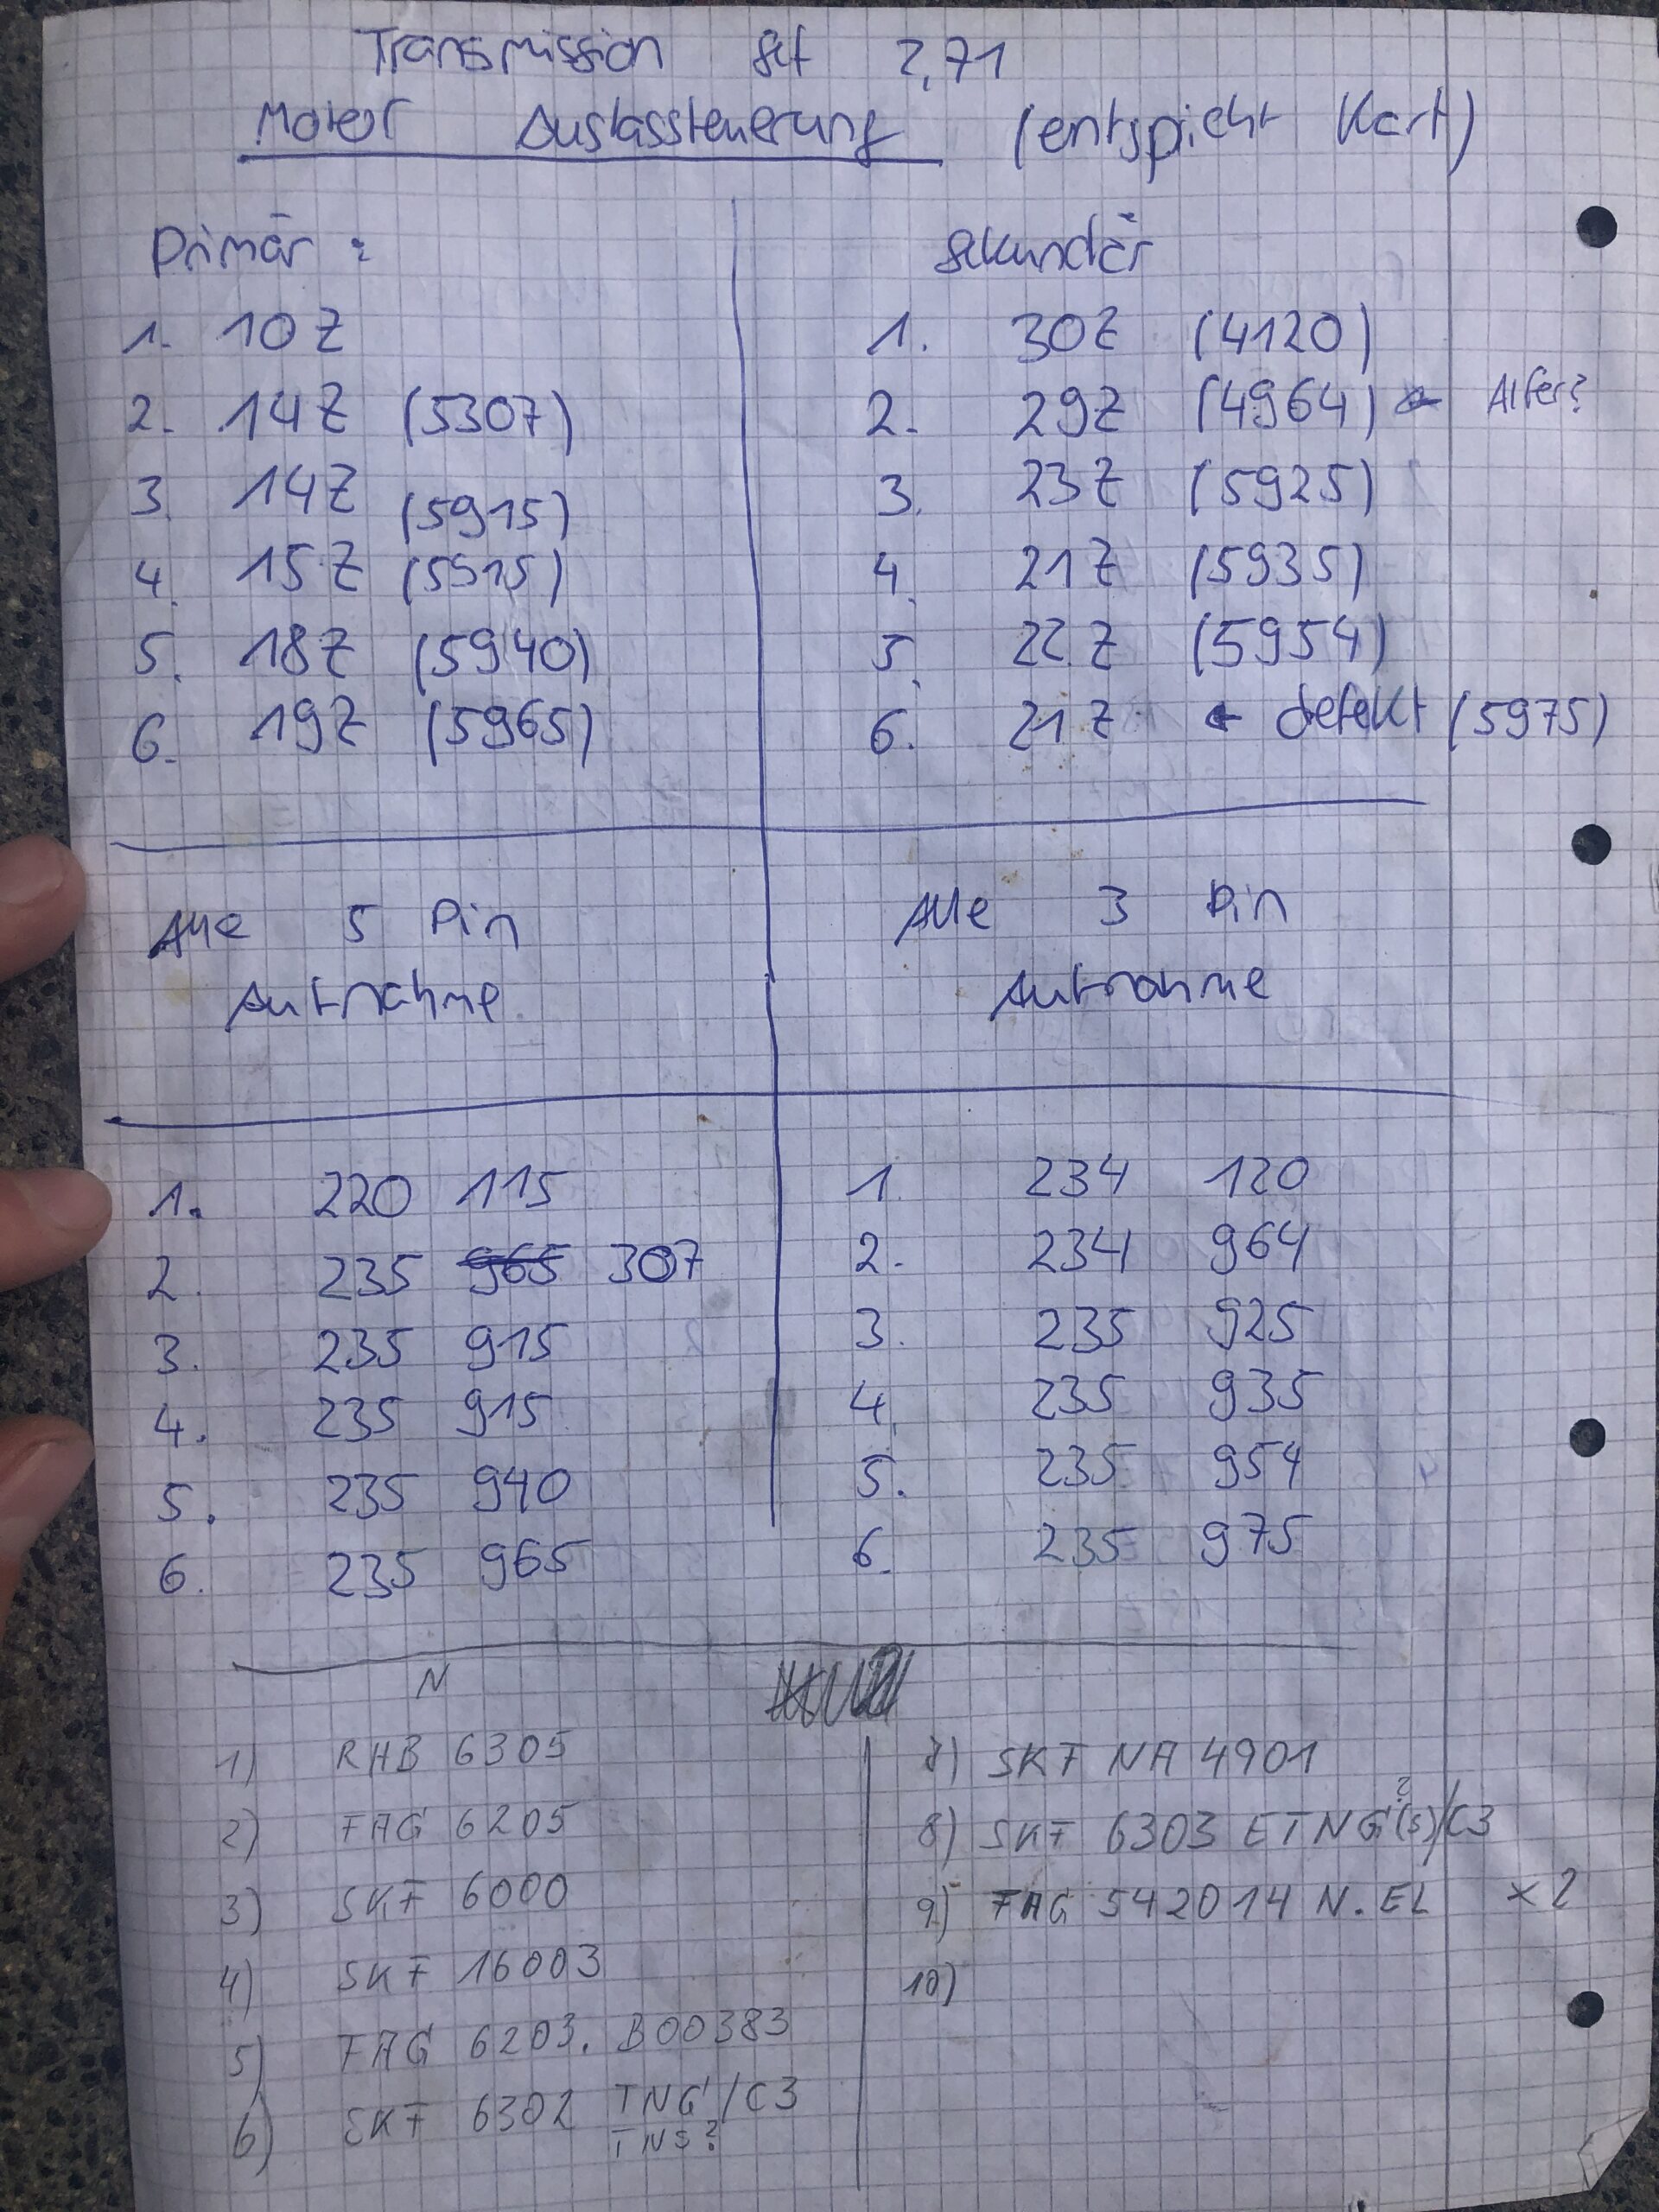 Transmission Set 2,71
Motor Auslasssteuerung (entspricht Kart)
Primär :
1. 10Z
2. 14Z (5307)
3. 14Z (5915)
4. 15Z (5915)
5. 18Z (5940)
6. 19Z (5965)
Sekundär
1. 30Z (4120)
2. 29Z (4964) ← Alter?
3. 23Z (5925)
4. 21Z (5935)
5. 22Z (5954)
6. 21Z ← defekt (5975)
Alle 5 Pin
Aufnahme
Alle 3 Pin
Aufnahme
1. 220 115
2. 235 965 307
3. 235 915
4. 235 915
5. 235 940
6. 235 965
1. 234 120
2. 234 964
3. 235 925
4. 235 935
5. 235 954
6. 235 975
N
1) RHB 6305
2) FAG 6205
3) SKF 6000
4) SKF 16003
5) FAG 6203. B00383
6) SKF 6302 TNG/C3
TNS?
7) SKF NA 4901
8) SKF 6303 ETNG?(S)/C3
9) FAG 542014 N.EL x2
10)